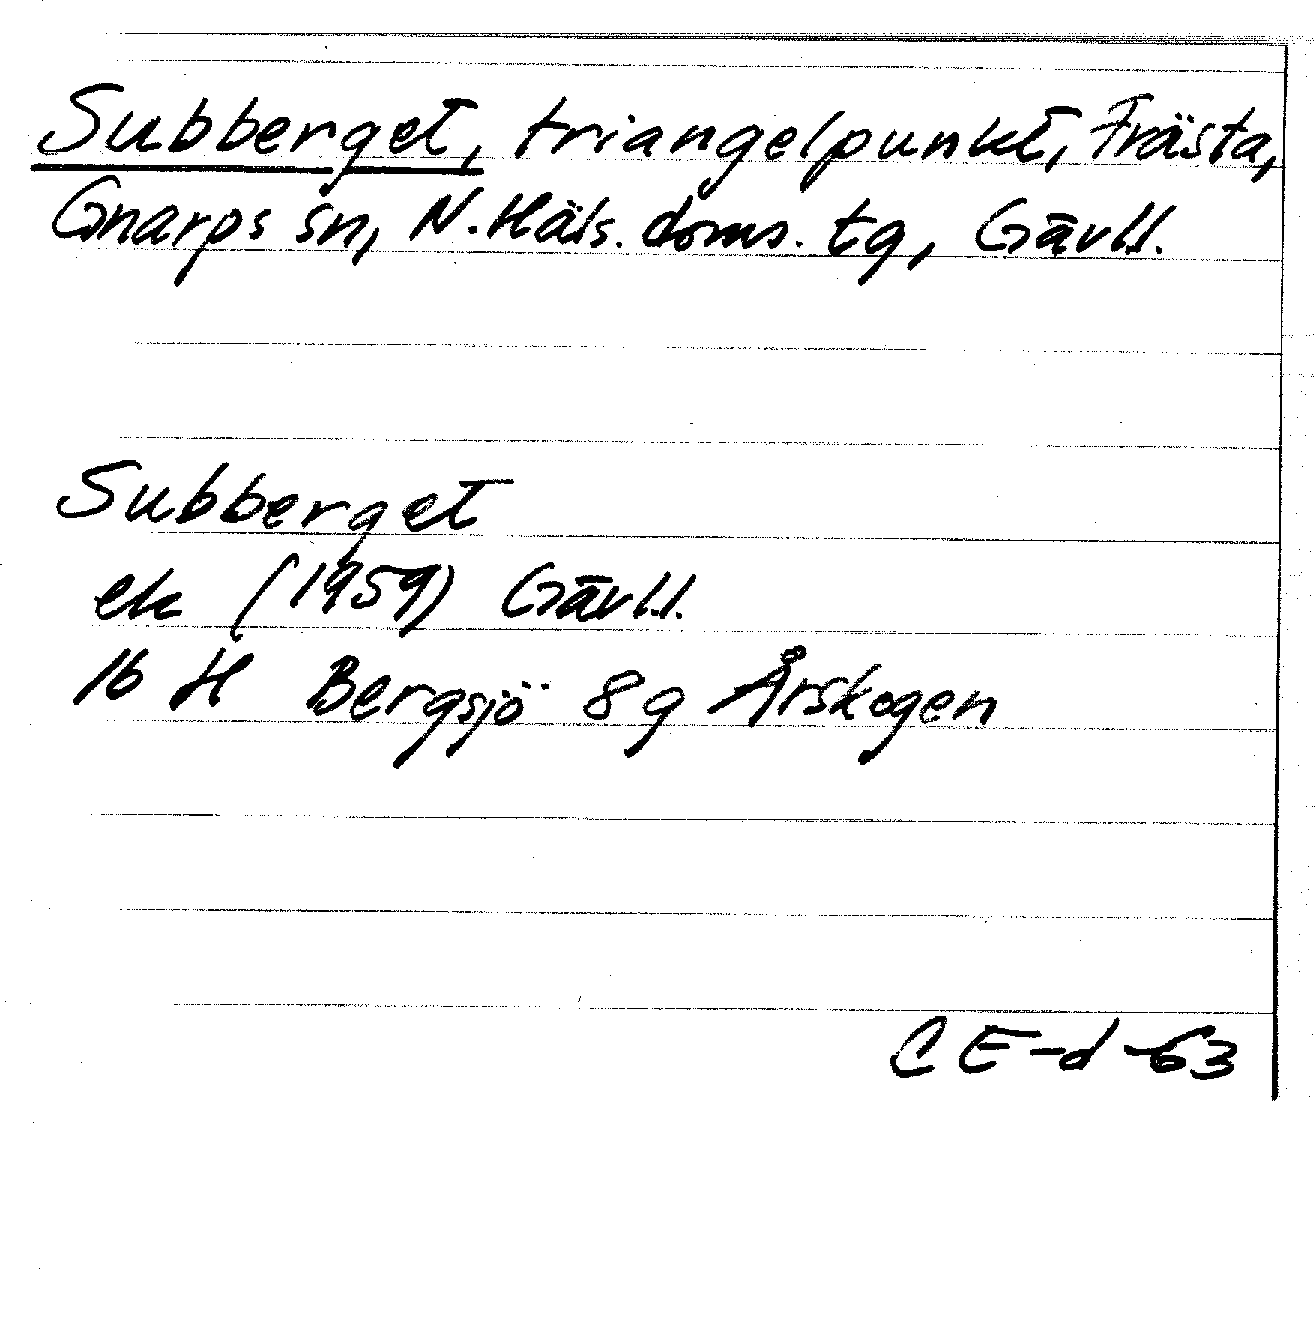 Subberget, triangelpunkt, Frästa,
Gnarps sn, N. Häls. doms. tg, Gävl.l.
Subberget
ek (1959) Gävl.l.
16 H Bergsjö 8g Årskogen
CE-d-63